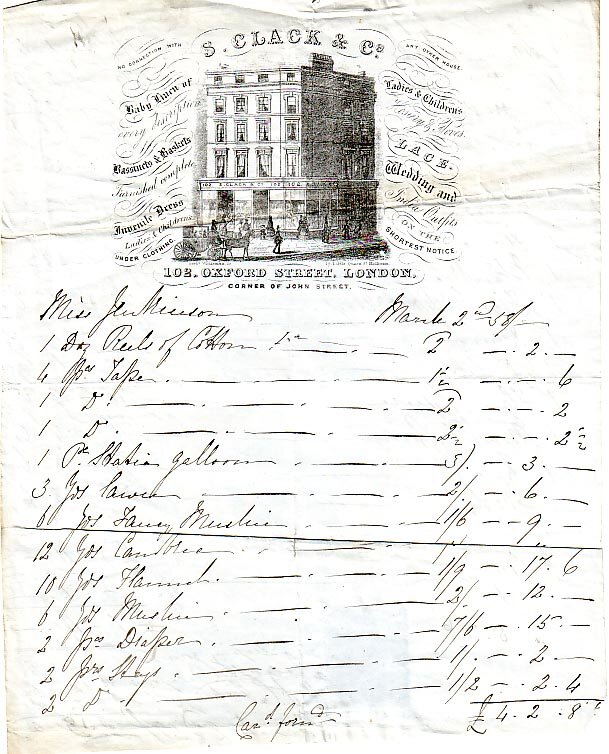 NO CONNECTION WITH
S. CLACK & Co
ANY OTHER HOUSE.
Baby Linen of
every Description
Bassinets & Baskets
Furnished complete
Juvenile Dress
Ladies & Childrens
UNDER CLOTHING
Ladies & Childrens
Hosiery & Gloves.
LACE.
Wedding and
India Outfits
ON THE
SHORTEST NOTICE
102. S. CLACK & Co 102
102, OXFORD STREET, LONDON,
CORNER OF JOHN STREET.
Miss Jenkinson March 2nd 58/-
1 Doz Reels of Cotton 2 — . 2 . —
4 Pcs Tape 1½ — . 6
1 Do 2 — . 2
1 Do 2½ — . 2½
1 Pce galloon 3/. — 3 . —
3 Yds Lawn 2/. — 6 . —
6 Yds Fancy Muslin 1/6 — 9 . —
12 Yds
10 Yds Flannel 1/9 — 17 . 6
6 Yds Muslin 2/. — 12 . —
2 Pcs Diaper 7/6 — 15 . —
2 Prs Stays 1/. — 2 . —
2 Do 1/2 — 2 . 4
Card forwd £ 4 . 2 . 8½